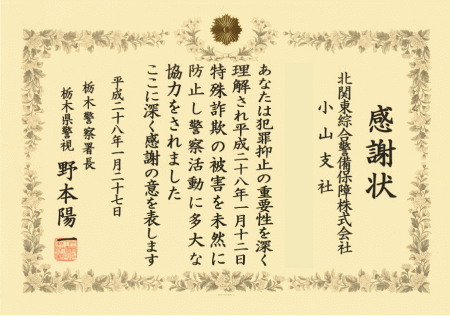 感謝状
北関東綜合警備保障株式会社
小山支社
あなたは犯罪抑止の重要性を深く
理解され平成二十八年一月十二日
特殊詐欺の被害を未然に
防止し警察活動に多大な
協力をされました
ここに深く感謝の意を表します
平成二十八年一月二十七日
栃木警察署長
栃木県警視 野本陽一